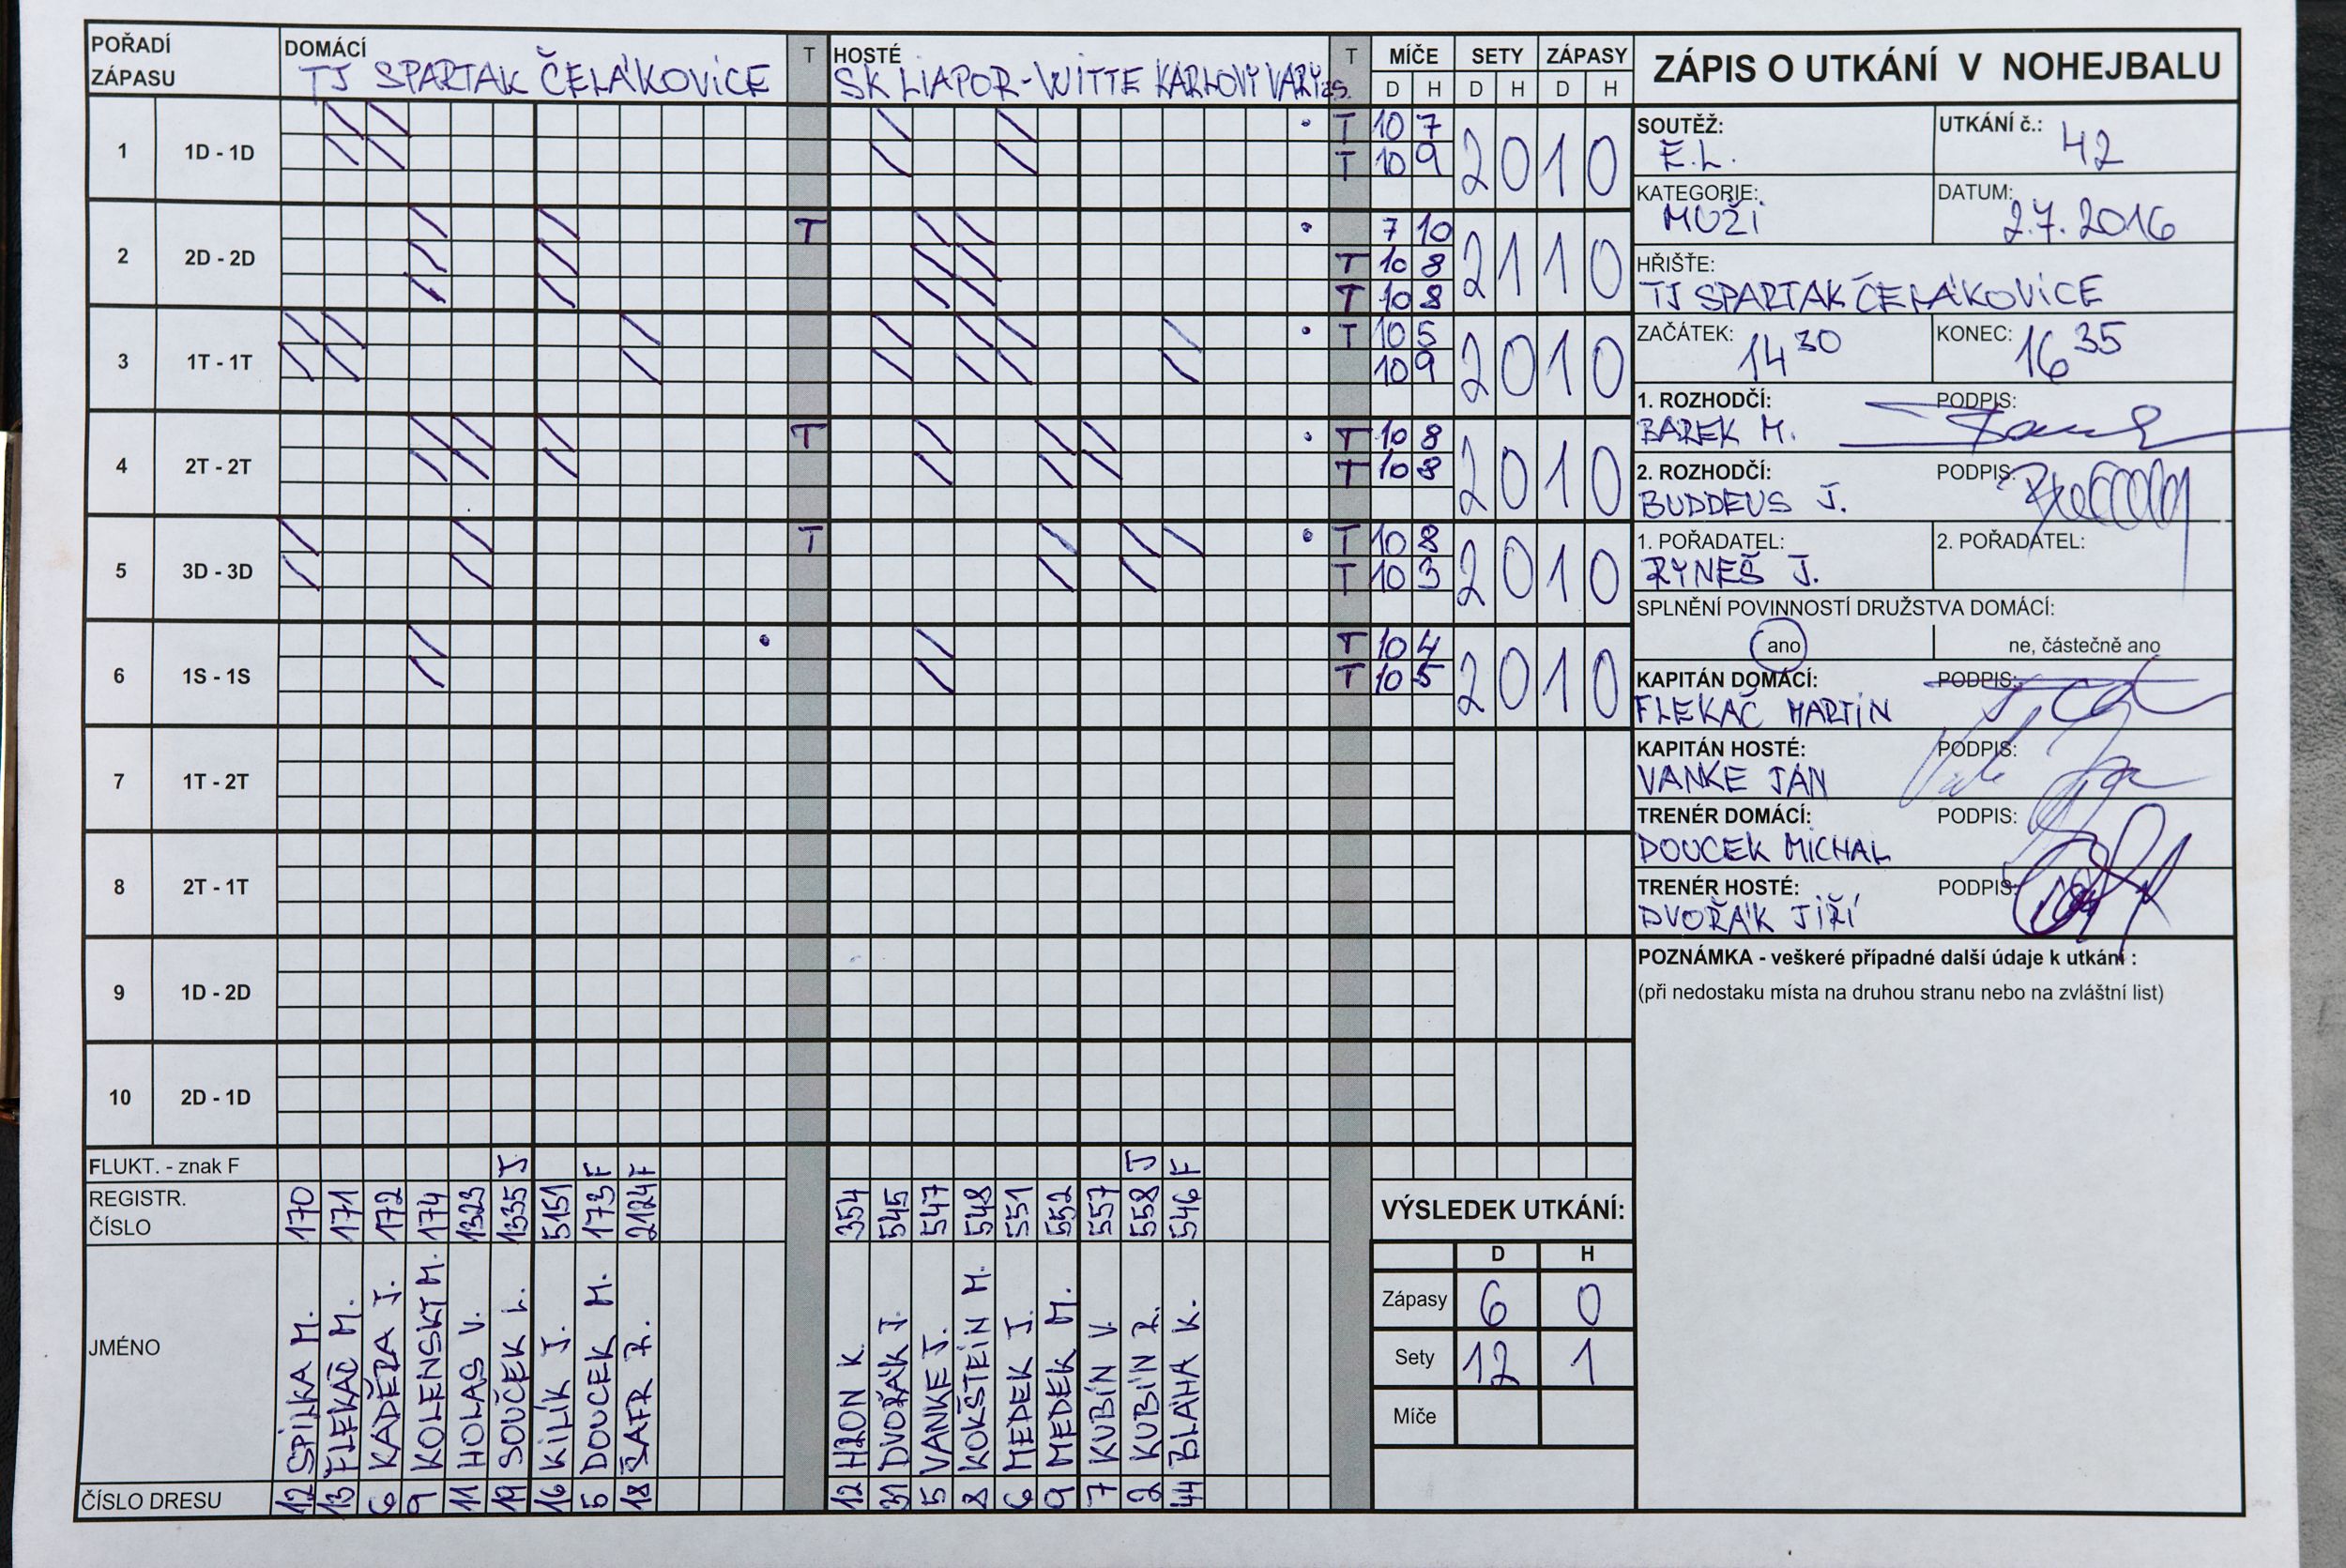 POŘADÍ ZÁPASU
DOMÁCÍ
TJ SPARTAK ČELÁKOVICE
T
HOSTÉ
SK LIAPOR-WITTE KARLOVY VARY z.s.
T
MÍČE SETY ZÁPASY
D H D H D H
1 1D - 1D T 10 7 2 0 1 0
T 10 9
2 2D - 2D T 7 10 2 1 1 0
T 10 8
T 10 8
3 1T - 1T T 10 5 2 0 1 0
10 9
4 2T - 2T T T 10 8 2 0 1 0
T 10 8
5 3D - 3D T T 10 8 2 0 1 0
T 10 3
6 1S - 1S T 10 4 2 0 1 0
T 10 5
7 1T - 2T
8 2T - 1T
9 1D - 2D
10 2D - 1D
FLUKT. - znak F
REGISTR. ČÍSLO
JMÉNO
ČÍSLO DRESU
12 SPILKA M. 170
13 FLEKAČ M. 171
6 KADĚRA J. 172
9 KOLENSKÝ M. 174
11 HOLAS V. 1323
19 SOUČEK L. 1335 J
16 KILÍK J. 5151
5 DOUCEK M. 173 F
18 ŠAFR R. 2124 F
12 HRON K. 354
31 DVOŘÁK J. 545
5 VANKE J. 547
8 KOKŠTEIN M. 548
6 MEDEK J. 551
9 MEDEK M. 552
7 KUBÍN V. 557
2 KUBÍN R. 558 J
44 BLÁHA K. 546 F
VÝSLEDEK UTKÁNÍ:
D H
Zápasy 6 0
Sety 12 1
Míče
ZÁPIS O UTKÁNÍ V NOHEJBALU
SOUTĚŽ: E.L.
UTKÁNÍ č.: 42
KATEGORIE: MUŽI
DATUM: 2.7.2016
HŘIŠTE: TJ SPARTAK ČELÁKOVICE
ZAČÁTEK: 14 30
KONEC: 16 35
1. ROZHODČÍ: BAREK M.
PODPIS:
2. ROZHODČÍ: BUDDEUS J.
PODPIS:
1. POŘADATEL: RYNEŠ J.
2. POŘADATEL:
SPLNĚNÍ POVINNOSTÍ DRUŽSTVA DOMÁCÍ:
ano
ne, částečně ano
KAPITÁN DOMÁCÍ: FLEKAČ MARTIN
PODPIS:
KAPITÁN HOSTÉ: VANKE JAN
PODPIS:
TRENÉR DOMÁCÍ: DOUCEK MICHAL
PODPIS:
TRENÉR HOSTÉ: DVOŘÁK JIŘÍ
PODPIS:
POZNÁMKA - veškeré případné další údaje k utkání :
(při nedostaku místa na druhou stranu nebo na zvláštní list)